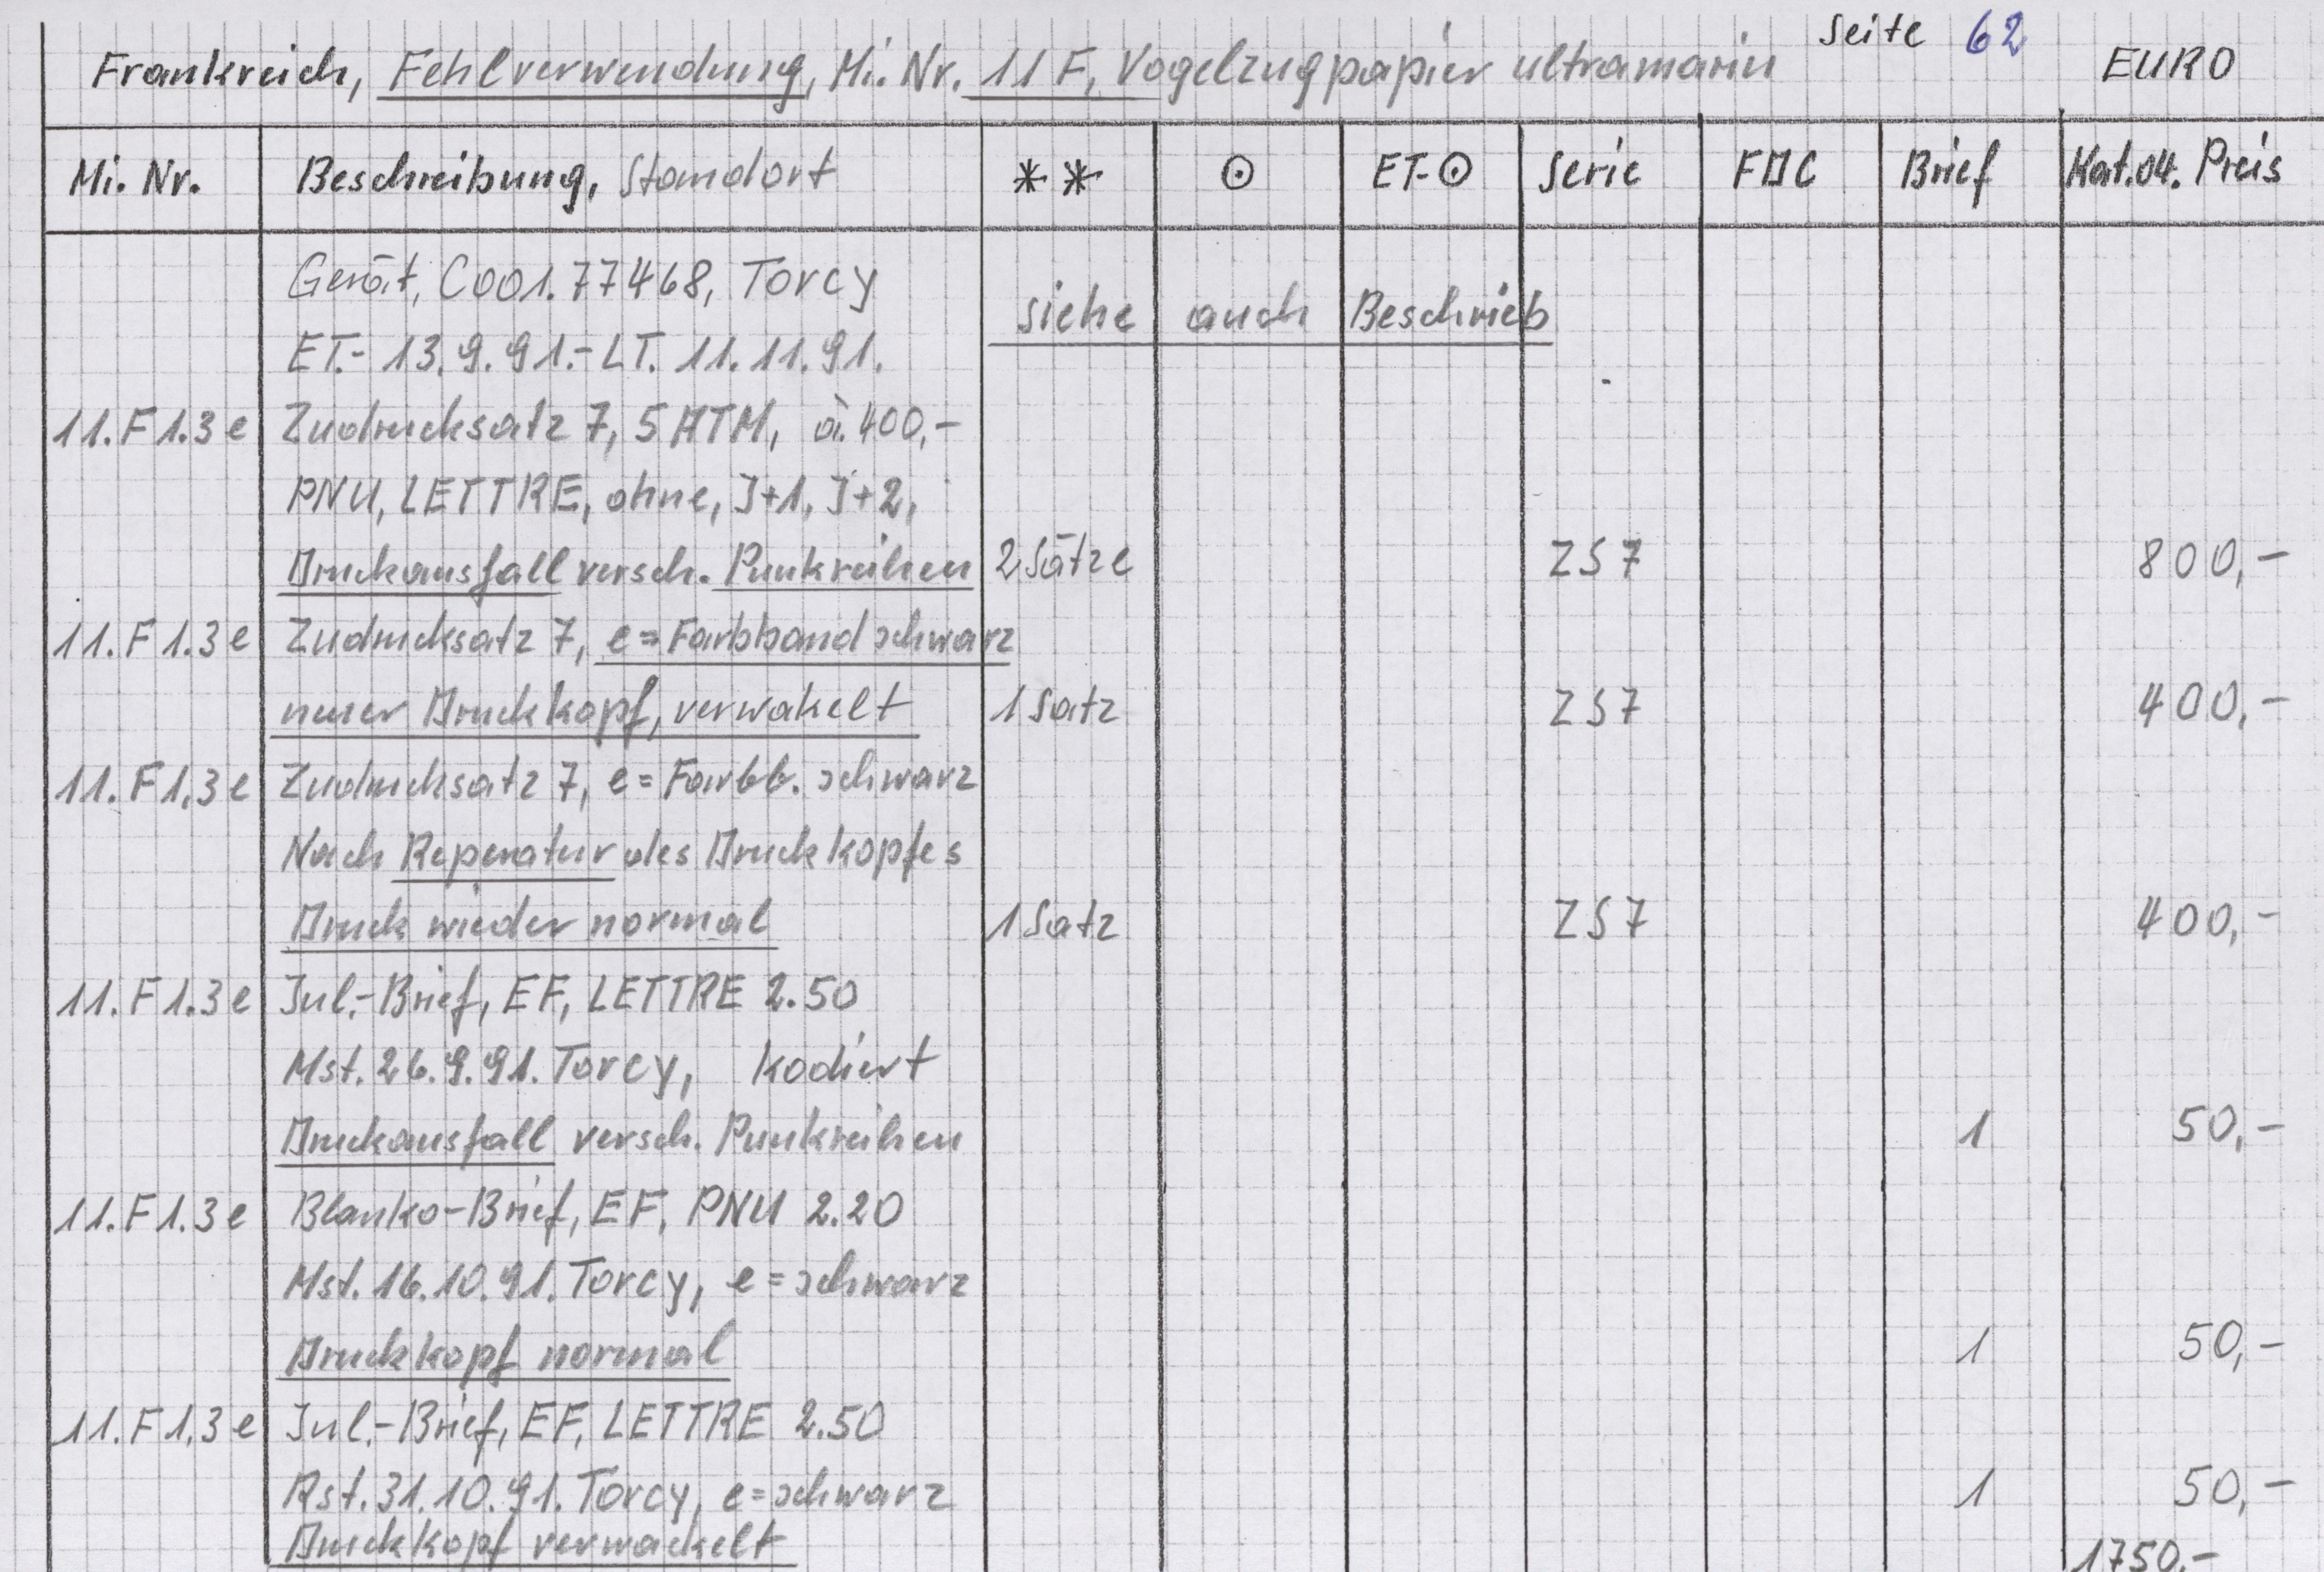 Seite 62
Frankreich, Fehlverwendung, Mi. Nr. 11 F, Vogelzugpapier ultramarin EURO
Mi. Nr. Beschreibung, Standort ** ⊙ ET-⊙ Serie FDC Brief Kat.04. Preis
Gerät, C001.77468, Torcy
siehe auch Beschrieb
ET.- 13.9.91.- LT. 11.11.91.
11.F1.3e Zudrucksatz 7, 5 ATM, à.400,-
PNU, LETTRE, ohne, J+1, J+2,
Druckausfall versch. Punkreihen 2 Sätze ZS7 800,-
11.F1.3e Zudrucksatz 7, e=Farbband schwarz
neuer Druckkopf, verwakelt 1 Satz ZS7 400,-
11.F1,3e Zudrucksatz 7, e=Farbb. schwarz
Nach Reperatur des Druckkopfes
Druck wieder normal 1 Satz ZS7 400,-
11.F1.3e Jnl.-Brief, EF, LETTRE 2.50
Mst. 26.9.91. Torcy, kodiert
Druckausfall versch. Punkreihen 1 50,-
11.F1.3e Blanko-Brief, EF, PNU 2.20
Mst. 16.10.91. Torcy, e=schwarz
Druckkopf normal 1 50,-
11.F1,3e Jnl.-Brief, EF, LETTRE 2.50
Rst. 31.10.91. Torcy, e=schwarz 1 50,-
Druckkopf verwackelt
1750.-